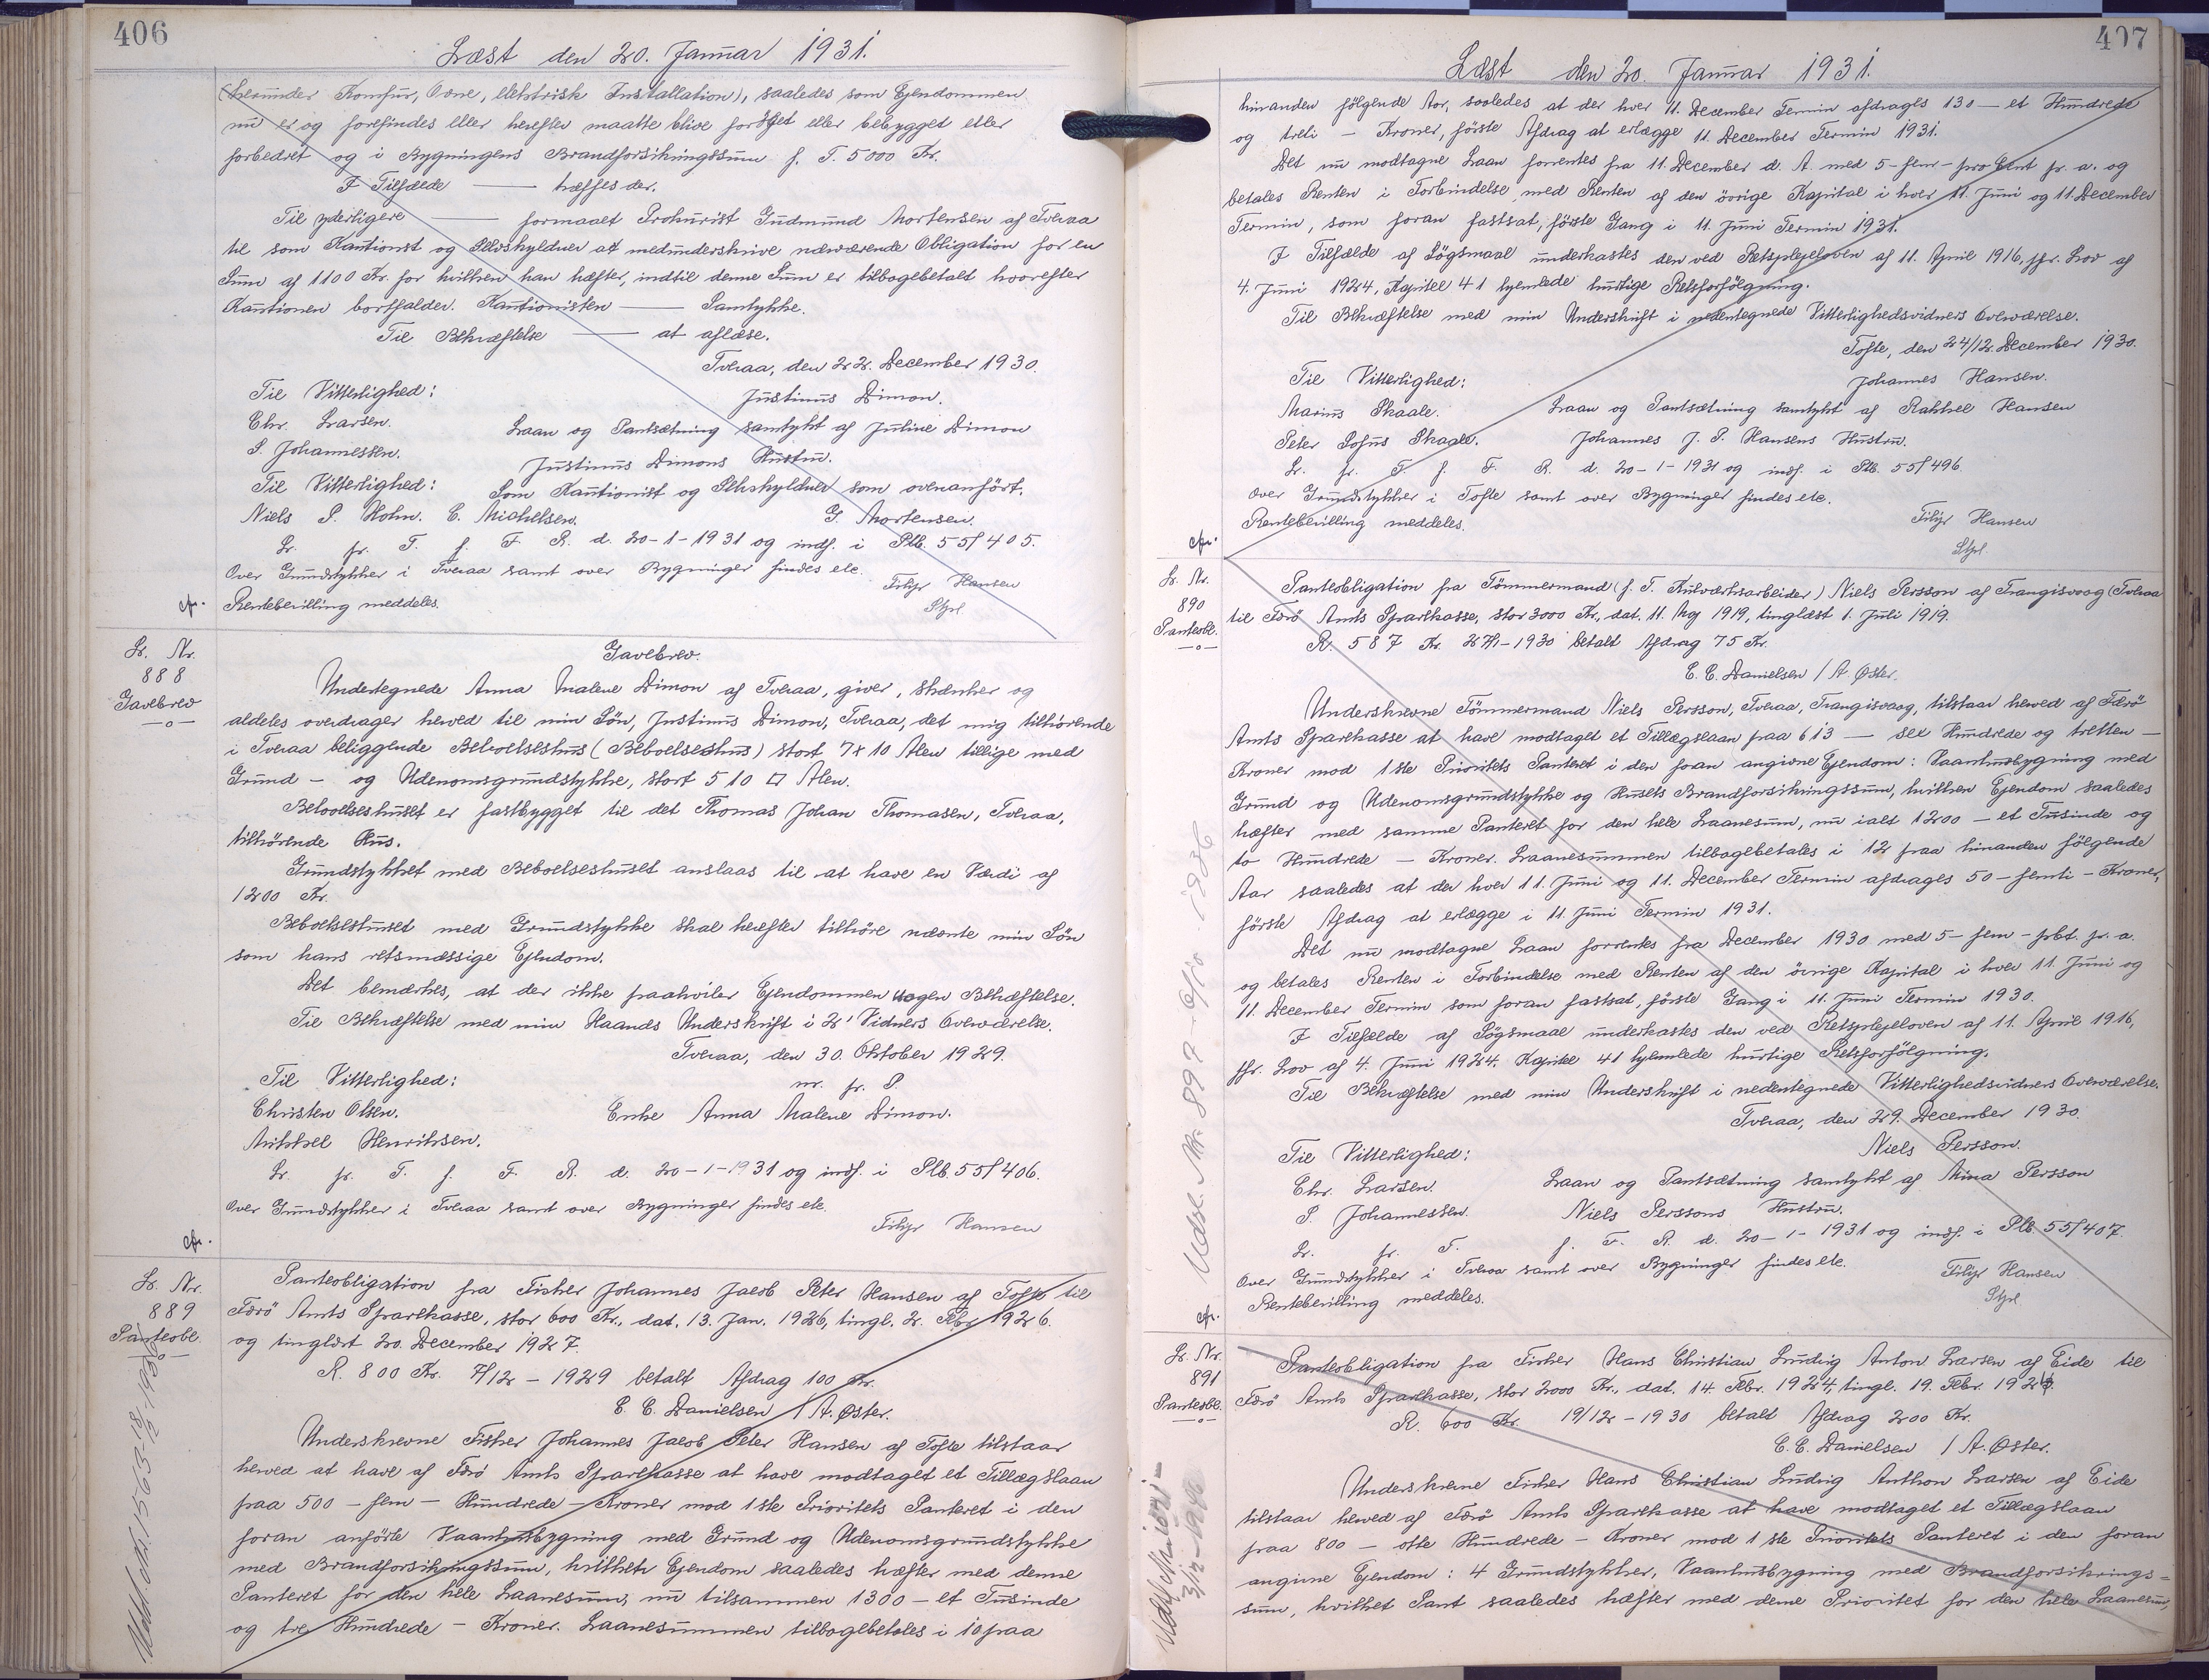 406
Læst den 20. Januar 1931.
(herunder Komfur, Ovne, elektrisk Installation), saaledes som Ejendommen
nu er og forefindes eller herefter maatte blive forøget eller bebygget eller
forbedret og i Bygningens Brandforsikringssum f. T. 5000 Kr.
I Tilfælde ——— træffes der.
Til yderligere ——— formaaet Prokurist Gudmund Mortensen af Tveraa
til som Kautionist og Selvskyldner at medunderskrive nærværende Obligation for en
Sum af 1100 Kr. for hvilken han hæfter, indtil denne Sum er tilbagebetalt hvorefter
Kautionen bortfalder. Kautionisten ——— Samtykke.
Til Bekræftelse ——— at aflæse.
Tveraa, den 22. December 1930.
Til Vitterlighed: Justinus Dimon.
Chr. Larsen. Laan og Pantsætning samtykt af Juline Dimon
P. Johannessen. Justinus Dimons Hustru.
Til Vitterlighed: Som Kautionist og Selvskyldner som ovenanført.
Niels P. Holm. C. Michelsen. G. Mortensen.
L. fr. T. f. F. R. d. 20-1-1931 og indf. i Plb. 55/405.
Over Grundstykker i Tveraa samt over Bygninger findes etc.
cfr. Rentebevilling meddeles. Filip Hansen
Stpl.
L. Nr.
888
Gavebrev
—o—
Gavebrev.
Undertegnede Anna Malene Dimon af Tveraa, giver, skænker og
aldeles overdrager herved til min Søn, Justinus Dimon, Tveraa, det mig tilhørende
i Tveraa beliggende Beboelseshus (Beboelseshus) stort 7x10 Alen tillige med
Grund – og Udenomsgrundstykke, stort 510 □ Alen.
Beboelseshuset er fastbygget til det Thomas Johan Thomasen, Tveraa,
tilhørende Hus.
Grundstykket med Beboelseshuset anslaas til at have en Værdi af
1200 Kr.
Beboelseshuset med Grundstykke skal herefter tilhøre nævnte min Søn
som hans retsmæssige Ejendom.
Det bemærkes, at der ikke paahviler Ejendommen nogen Behæftelse.
Til Bekræftelse med min Haands Underskrift i 2' Vidners Overværelse.
Tveraa, den 30. Oktober 1929.
Til Vitterlighed: m. p. P.
Christen Olsen. Enke Anna Malene Dimon.
Mikkel Henriksen.
L. fr. T. f. F. R. d. 20-1-1931 og indf. i Plb. 55/406.
Over Grundstykker i Tveraa samt over Bygninger findes etc.
Filip Hansen
cfr.
L. Nr.
889
Panteobl.
—o—
Udsl. Nr. 1563-18/12-1936
Panteobligation fra Fisker Johannes Jacob Peter Hansen af Tofte til
Færø Amts Sparekasse, stor 600 Kr., dat. 13. Jan. 1926, tingl. 2. Febr. 1926.
og tinglæst 20. December 1927.
R. 800 Kr. 7/12 – 1929 betalt Afdrag 100 Kr.
C. C. Danielsen / A. Øster.
Underskrevne Fisker Johannes Jacob Peter Hansen af Tofte tilstaar
herved at have af Færø Amts Sparekasse at have modtaget et Tillægslaan
paa 500 – fem – Hundrede – Kroner mod 1ste Prioritets Panteret i den
foran anførte Vaanhusbygning med Grund og Udenomsgrundstykke
med Brandforsikringssum, hvilken Ejendom saaledes hæfter med denne
Panteret for den hele Laanesum, nu tilsammen 1300 – et Tusinde
og tre Hundrede – Kroner. Laanesummen tilbagebetales i 10 paa
407
Læst den 20. Januar 1931.
hinanden følgende Aar, saaledes at der hver 11. December Termin afdrages 130 – et Hundrede
og treti – Kroner, første Afdrag at erlægge 11. December Termin 1931.
Det nu modtagne Laan forrentes fra 11. December d. A. med 5 – fem – pro Cent pr. a. og
betales Renten i Forbindelse med Renten af den øvrige Kapital i hver 11. Juni og 11. December
Termin, som foran fastsat, første Gang i 11. Juni Termin 1931.
I Tilfælde af Søgsmaal underkastes den ved Retsplejeloven af 11. April 1916, jfr. Lov af
4. Juni 1924, Kapitel 41 hjemlede hurtige Retsforfølgning.
Til Bekræftelse med min Underskrift i nedentegnede Vitterlighedsvidners Overværelse.
Tofte, den 24/12. December 1930.
Til Vitterlighed: Johannes Hansen.
Marius Skaale. Laan og Pantsætning samtykt af Rakkel Hansen
Peter Sofus Skaale. Johannes J. P. Hansens Hustru.
L. fr. T. f. F. R. d. 20-1-1931 og indf. i Plb. 55/496.
Over Grundstykker i Tofte samt over Bygninger findes etc.
Rentebevilling meddeles. Filip Hansen
cfr. Stpl.
L. Nr.
890
Panteobl.
—o—
Udsl. Nr. 897-6/10-1936
Panteobligation fra Tømmermand (f. T. Kulværksarbeider) Niels Persson af Trangisvaag (Tveraa
til Færø Amts Sparekasse, stor 3000 Kr., dat. 11. Maj 1919, tinglæst 1. Juli 1919.
R. 587 Kr. – 1930 betalt Afdrag 75 Kr.
C. C. Danielsen / A. Øster.
Underskrevne Tømmermand Niels Persson, Tveraa, Trangisvaag, tilstaar herved af Færø
Amts Sparekasse at have modtaget et Tillægslaan paa 613 — sex Hundrede og tretten —
Kroner mod 1ste Prioritets Panteret i den foran angivne Ejendom: Vaanhusbygning med
Grund og Udenomsgrundstykke og Husets Brandforsikringssum, hvilken Ejendom saaledes
hæfter med samme Panteret for den hele Laanesum, nu ialt 1200 – et Tusinde og
to Hundrede – Kroner. Laanesummen tilbagebetales i 12 paa hinanden følgende
Aar saaledes at der hver 11. Juni og 11. December Termin afdrages 50 – femti – Kroner,
første Afdrag at erlægge i 11. Juni Termin 1931.
Det nu modtagne Laan forrentes fra December 1930 med 5 – fem – pCt. pr. a.
og betales Renten i Forbindelse med Renten af den øvrige Kapital i hver 11. Juni og
11. December Termin som foran fastsat, første Gang i 11. Juni Termin 1930.
I Tilfælde af Søgsmaal underkastes den ved Retsplejeloven af 11. April 1916,
jfr. Lov af 4. Juni 1924. Kapitel 41 hjemlede hurtige Retsforfølgning.
Til Bekræftelse med min Underskrift i nedentegnede Vitterlighedsvidners Overværelse.
Tveraa, den 29. December 1930.
Til Vitterlighed: Niels Persson.
Chr. Larsen. Laan og Pantsætning samtykt af Mina Persson
P. Johannessen. Niels Perssons Hustru.
L. fr. T. f. F. R. d. 20-1-1931 og indf. i Plb. 55/407.
Over Grundstykker i Tveraa samt over Bygninger findes etc.
Rentebevilling meddeles. Filip Hansen
cfr. Stpl.
L. Nr.
891
Panteobl.
—o—
3/12-1940
Panteobligation fra Fisker Hans Christian Ludvig Anton Larsen af Eide til
Færø Amts Sparekasse, stor 2000 Kr., dat. 14. Febr. 1924, tingl. 19. Febr. 192
R. 600 Kr. 19/12-1930 betalt Afdrag 200 Kr.
C. C. Danielsen / A. Øster.
Underskrevne Fisker Hans Christian Ludvig Anthon Larsen af Eide
tilstaar herved af Færø Amts Sparekasse at have modtaget et Tillægslaan
paa 800 – otte Hundrede – Kroner mod 1ste Prioritets Panteret i den foran
angivne Ejendom: 4 Grundstykker, Vaanhusbygning med Brandforsikrings=
sum, hvilket Pant saaledes hæfter med denne Prioritet for den hele Laanesum,